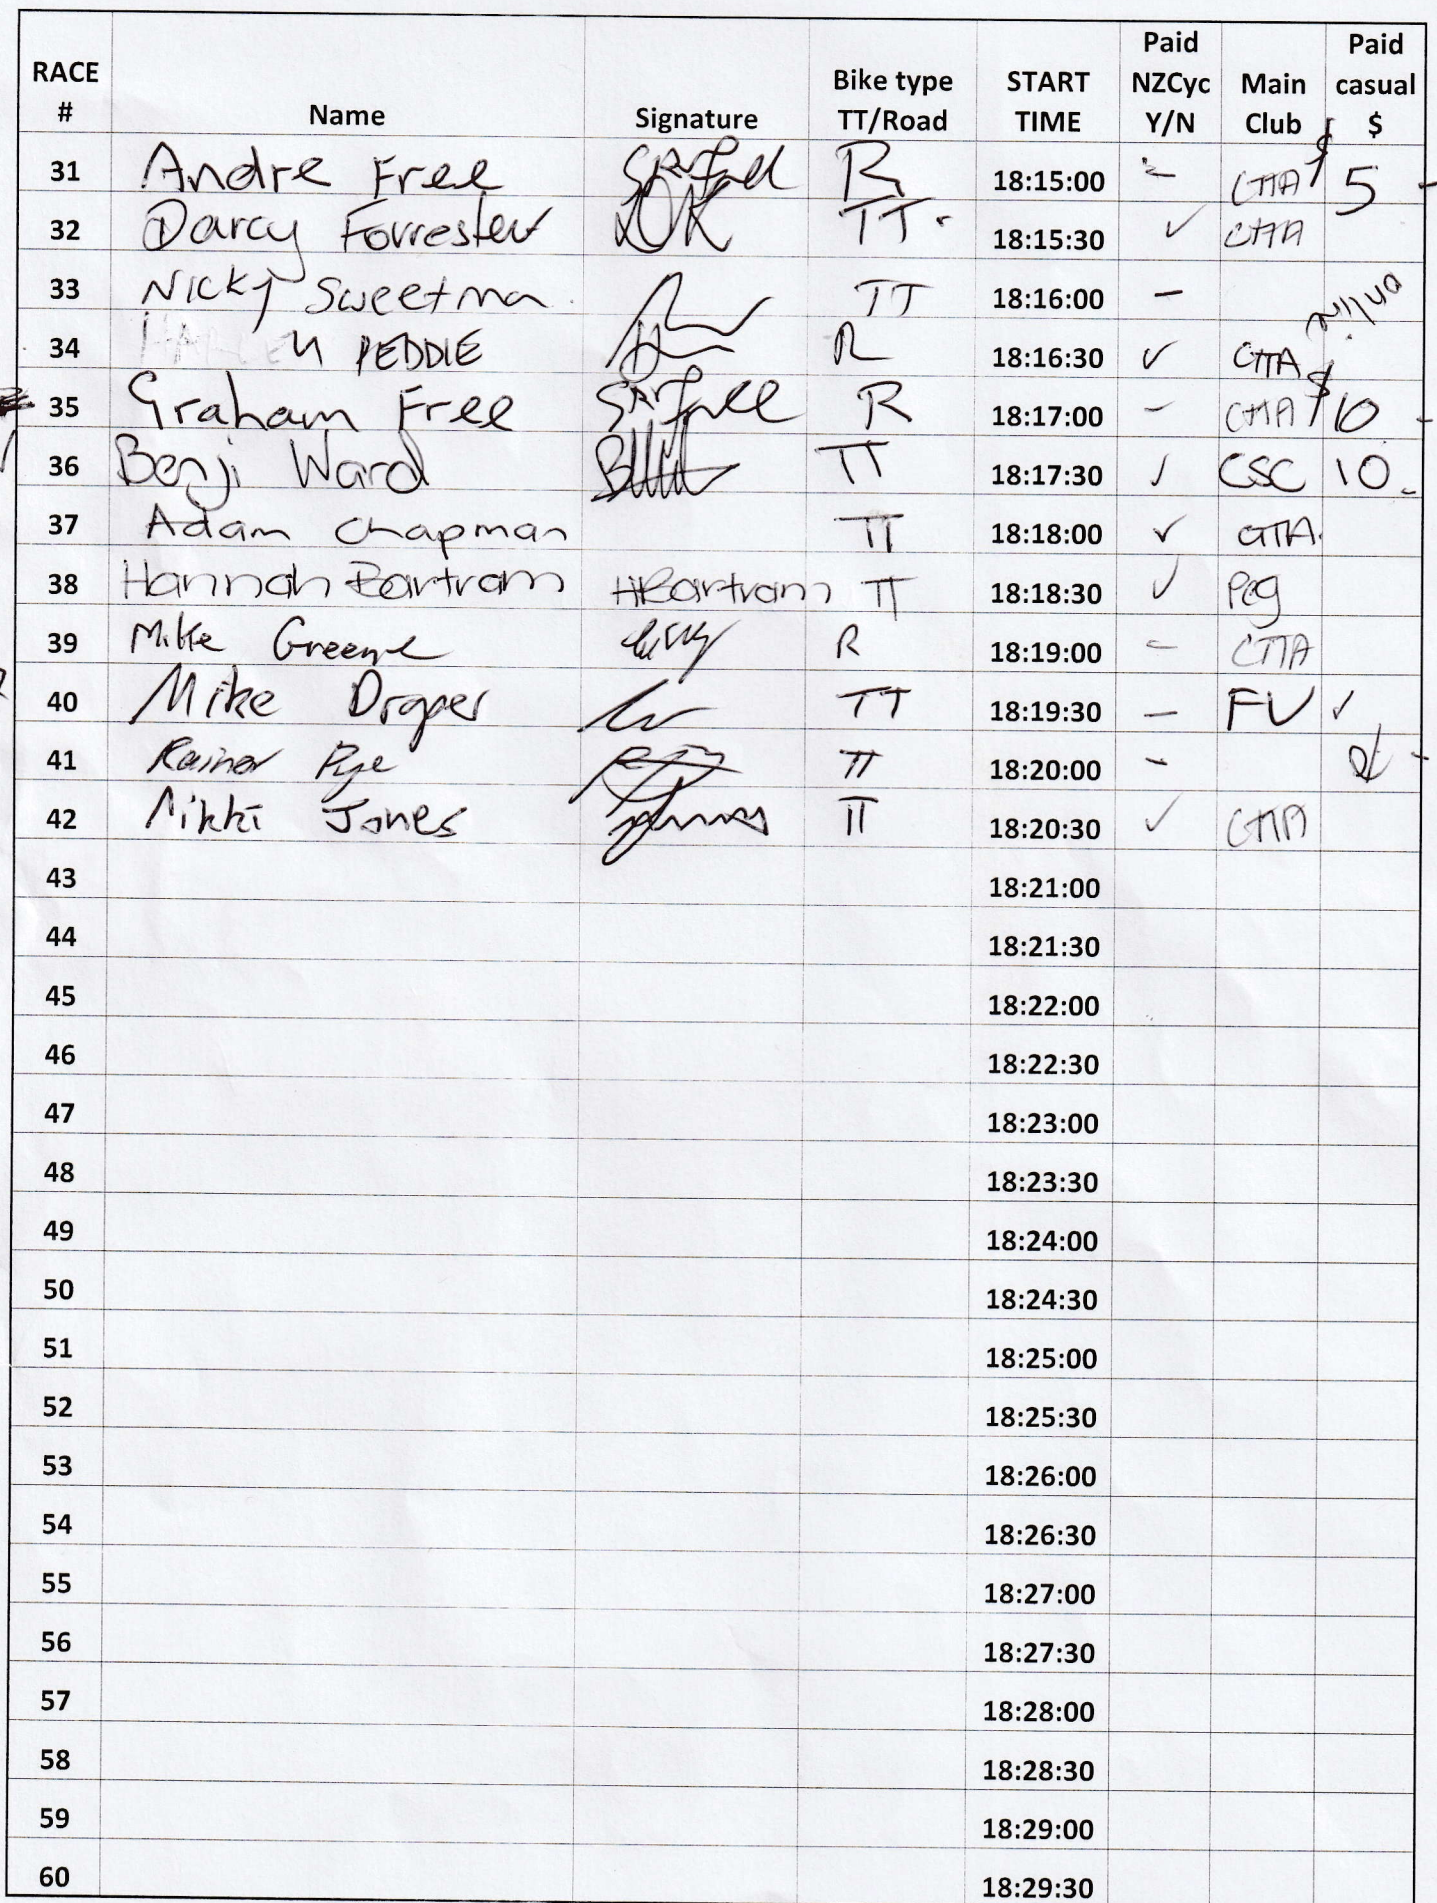 RACE # Name Signature Bike type TT/Road START TIME Paid NZCyc Y/N Main Club Paid casual $
31 Andre Free R 18:15:00 - CTTA $5 -
32 Darcy Forrester TT. 18:15:30 ✓ CTTA
33 Nicky Sweetma TT 18:16:00 - online
34 PEDDIE R 18:16:30 ✓ CTTA
35 Graham Free R 18:17:00 - CTTA $10 -
36 Benji Ward TT 18:17:30 ✓ CSC 10 -
37 Adam Chapman TT 18:18:00 ✓ CTTA.
38 Hannah Bartram HBartram TT 18:18:30 ✓ Peg
39 Mike Greene R 18:19:00 - CTTA
40 Mike Draper TT 18:19:30 - FV ✓
41 Rainer Pye TT 18:20:00 -
42 Nikki Jones TT 18:20:30 ✓ CTTA
43 18:21:00
44 18:21:30
45 18:22:00
46 18:22:30
47 18:23:00
48 18:23:30
49 18:24:00
50 18:24:30
51 18:25:00
52 18:25:30
53 18:26:00
54 18:26:30
55 18:27:00
56 18:27:30
57 18:28:00
58 18:28:30
59 18:29:00
60 18:29:30